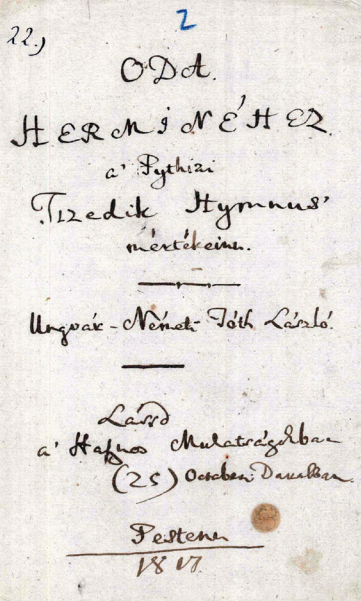 2
22.)
ODA.
HERMINÉHEZ.
a' Pythizi
Tizedik Hymnus'
mértékeinn.
Ungvár-Németi Tóth László.
Lássd
a' Hasznos Mulatságokban
(25)
Pestenn
1817.